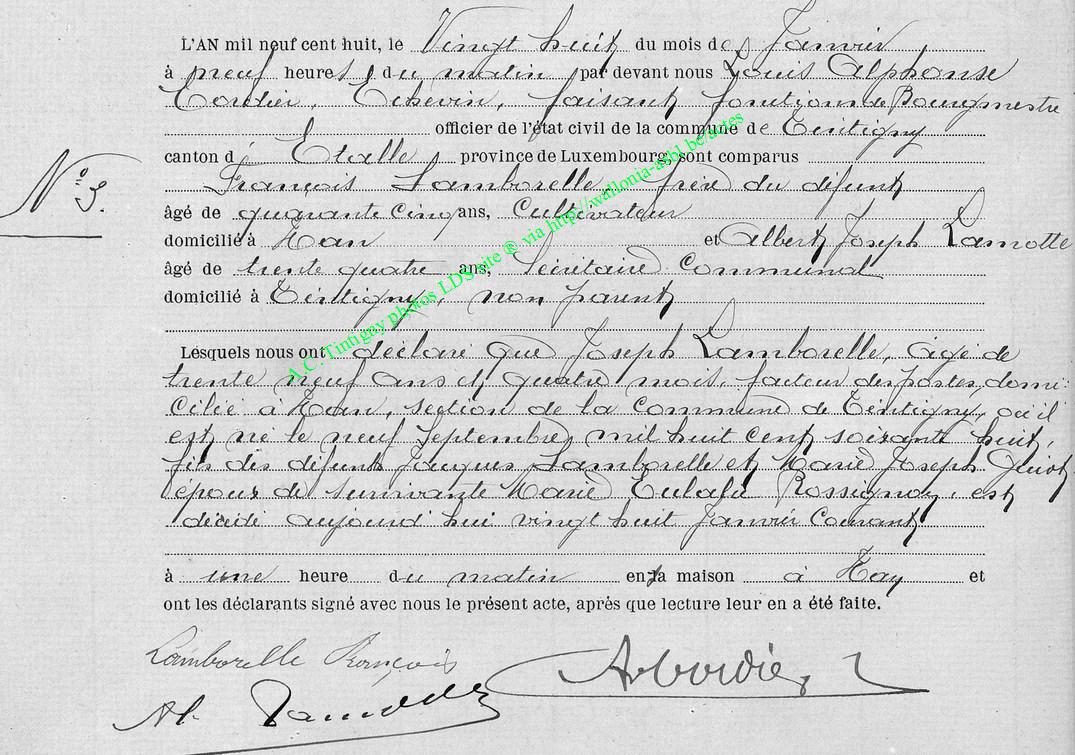 L'AN mil neuf cent huit, le Vingt huit du mois de Janvier
à neuf heures du matin par devant nous Louis Alphonse
Cordier, Echevin, faisant fonctions de Bourgmestre
officier de l'état civil de la commune de Tintigny
canton d'Etalle province de Luxembourg, sont comparus
N° 3.
François Lamborelle, frère du défunt
âgé de quarante cinq ans, Cultivateur
domicilié à Han et Albert Joseph Lamotte
âgé de trente quatre ans, Secrétaire Communal
domicilié à Tintigny, non parent
Lesquels nous ont déclaré que Joseph Lamborelle, âgé de
trente neuf ans et quatre mois, facteur des postes, domi-
cilié à Han, section de la Commune de Tintigny, où il
est né le neuf Septembre mil huit cent soixante huit,
fils des défunts Jacques Lamborelle et Marie Joseph
époux de survivante Marie Eulalie Rossignon, est
décédé aujourd'hui vingt huit Janvier Courant
à une heure du matin en sa maison à Han et
ont les déclarants signé avec nous le présent acte, après que lecture leur en a été faite.
Lamborelle François
Al. Lamotte
A.C. Tintigny photos LDS site ® via http://wallonia-asbl.be/actes